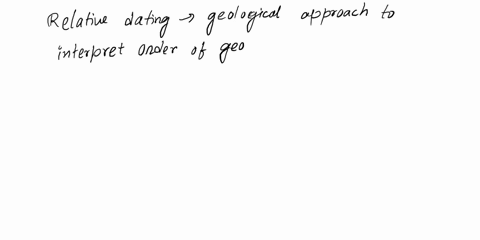 Relative dating → geological approach to
interpret order of geo